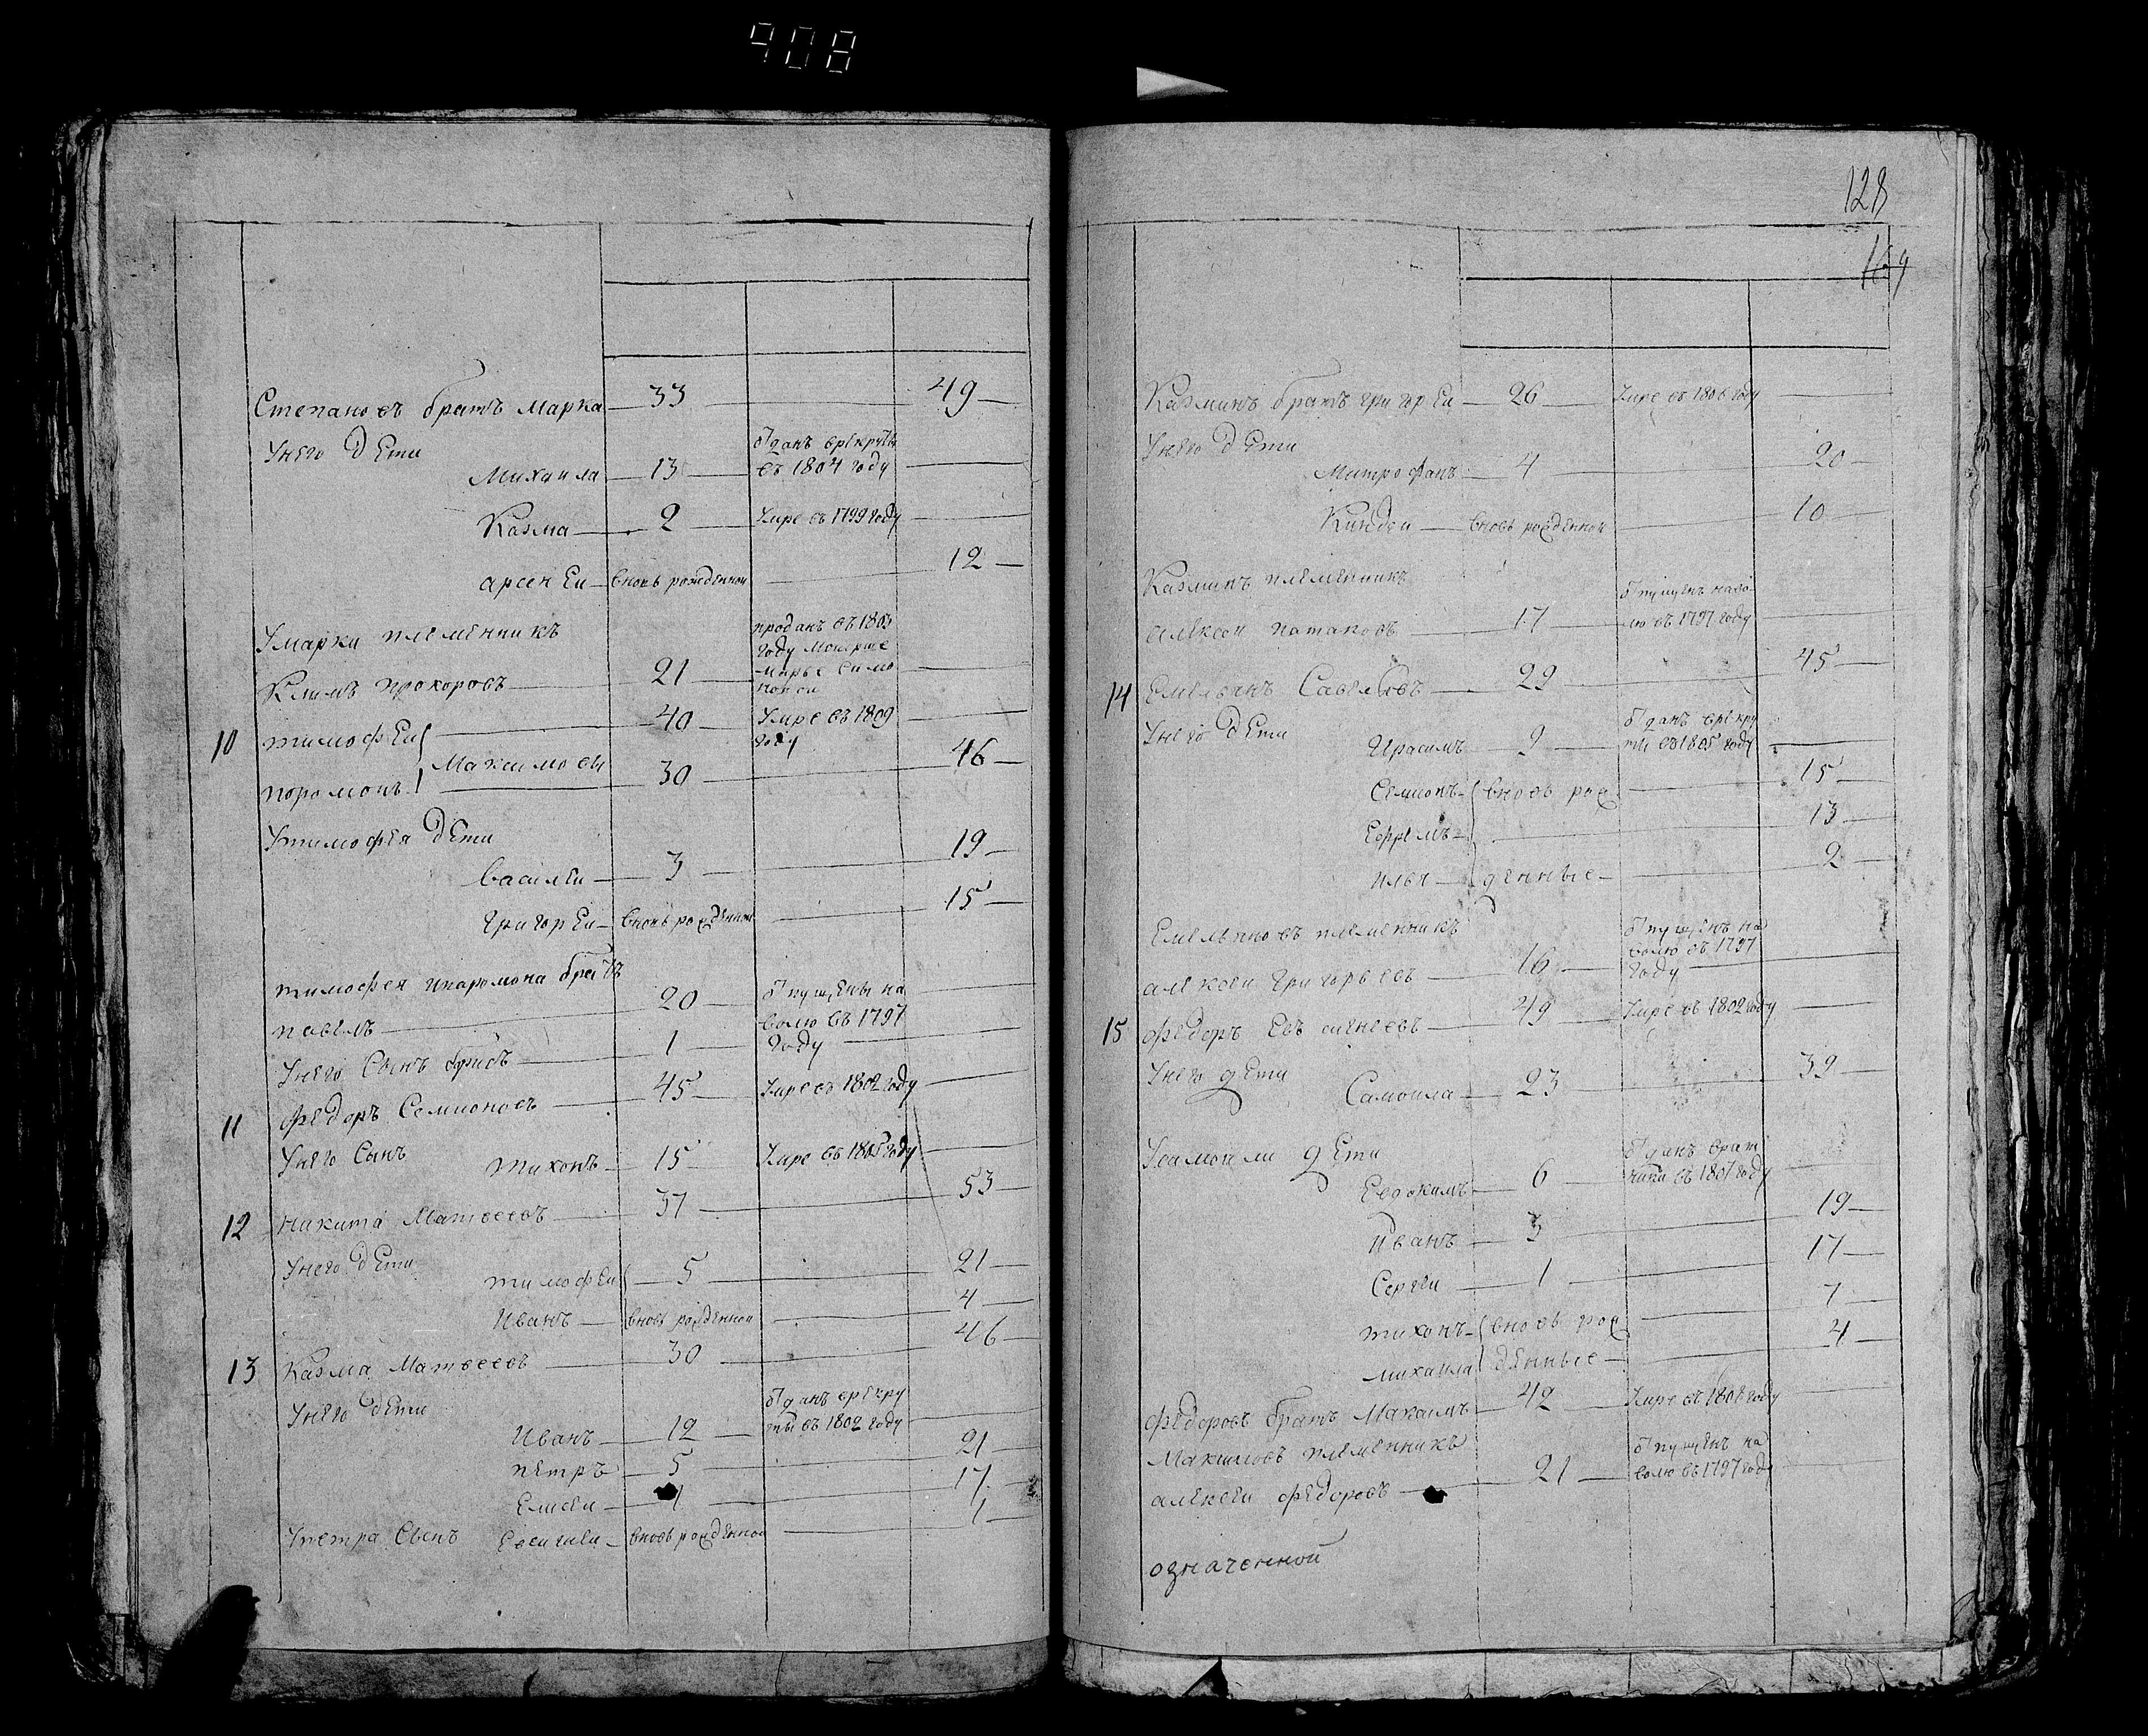 908
Степановъ братъ Марка 33 49
У него дѣти
Михаила 13 отданъ врекруты въ 1804 году
Казма 2 Умре въ 1799 году
арсенѣи вновь рожденнои 12
У марки племенникъ
Климъ прохоровъ 21 проданъ въ 1803 году
10 тимофѣи Максимовы 40 Умре въ 1809 году
поромонъ 30 46
У тимофѣя дѣти
василѣи 3 19
григорѣи вновь рожденнои 15
тимофея ипаромона братъ
павелъ 20 отпущены на волю въ 1797 году
У него Сынъ 1
11 федоръ Семионовъ 45 Умре въ 1802 году
У него Сынъ тихонъ 15 Умре въ 1805 году
12 никита Матвеевъ 37 53
У него дѣти тимофѣи 5 21
Иванъ вновь рожденнои 4
13 Казма Матвеевъ 30 46
У него дѣти
Иванъ 12 отданъ врекруты въ 1802 году
петръ 5 21
Елисеи 1 17
У петра Сынъ Евсигнеи вновь рожденнои 1
128
164
Казминъ братъ григорѣи 26 Умре въ 1806 году
У него дѣти
Митрофанъ 4 20
Киндеи вновь рожденнои 10
Казминъ племенникъ
алексеи потаповъ 17 отпущенъ наволю въ 1797 году
14 Емельянъ Савельевъ 29 45
У него дѣти Ирасимъ 9 отданъ врекруты въ 1805 году
Семионъ вновь рож 15
Ефремъ 13
илья денные 2
Емельяновъ племенникъ
алексеи григорьевъ 16 отпущенъ на волю въ 1797 году
15 федоръ Евсигнеевъ 49 Умре въ 1802 году
У него дѣти
Самоила 23 39
У самоилы дѣти
Евдокимъ 6 отданъ въ 1807 году
Иванъ 3 19
Сергеи 1 17
тихонъ вновь рож 7
михаила денные 4
федоровъ братъ Максимъ 42 Умре въ 1808 году
Максимовъ племенникъ
алексеи федоровъ 21 отпущенъ на волю въ 1797 году
означенной